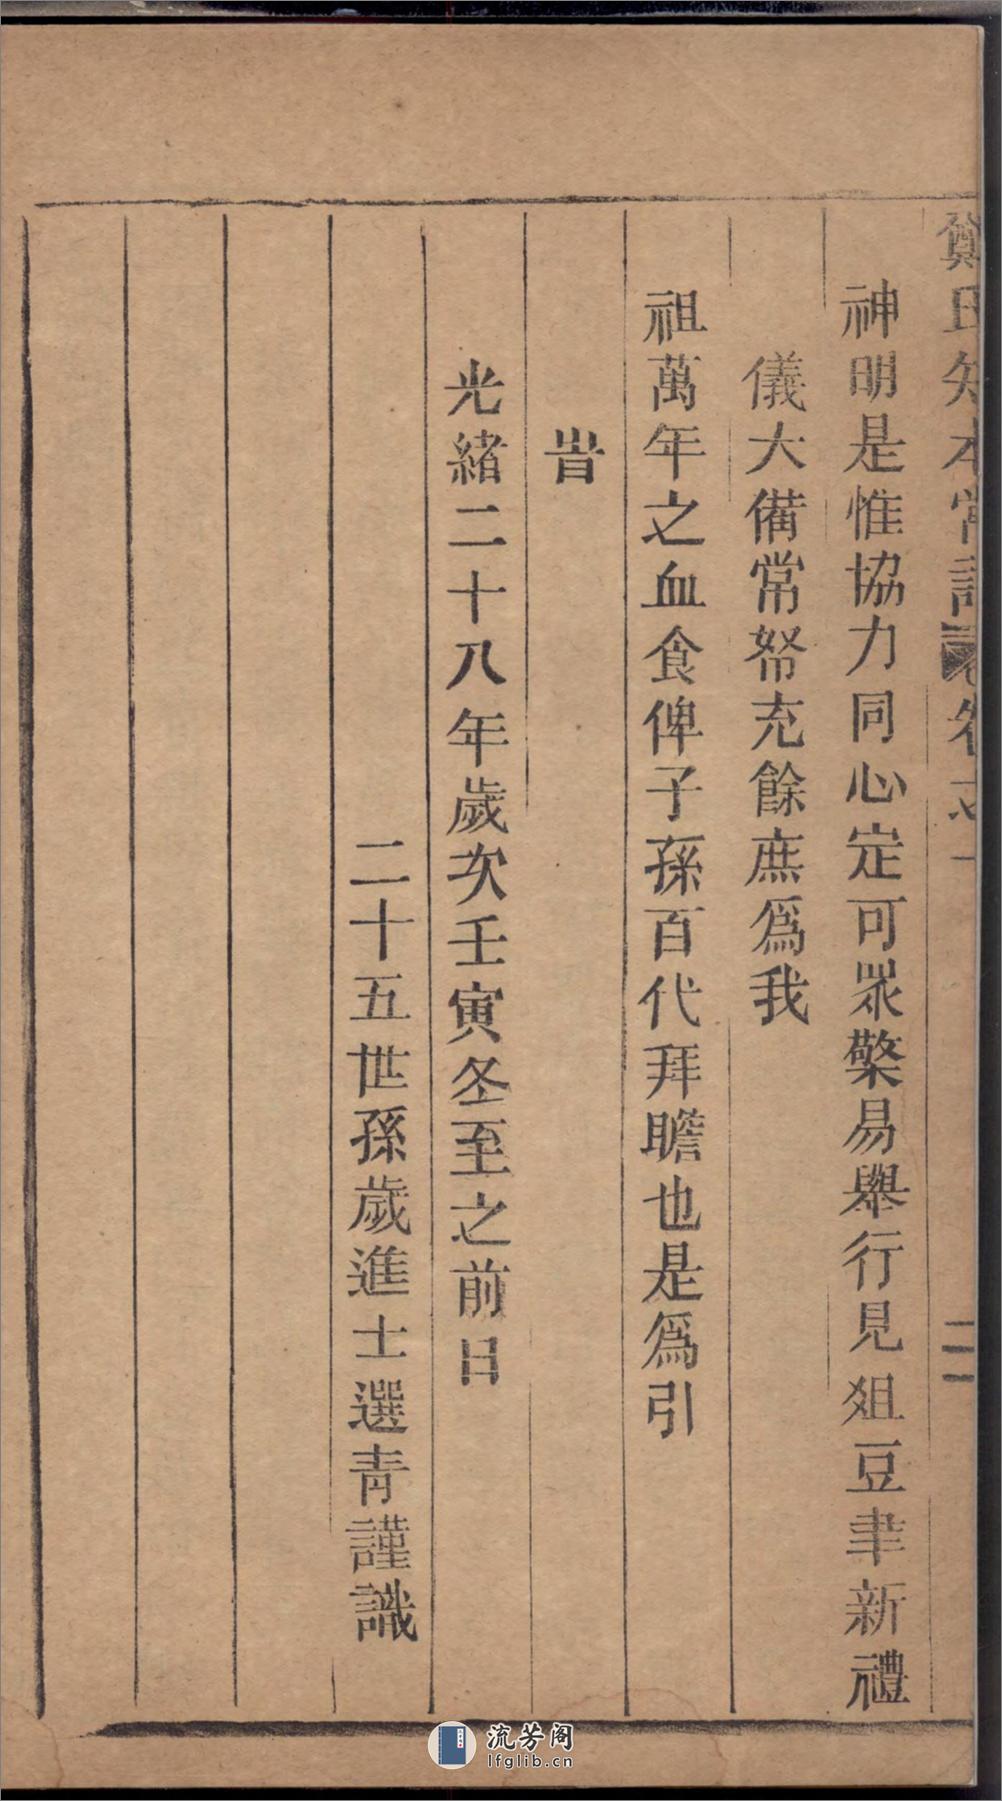 鄭氏知本常記卷之一 二
神明是惟協力同心定可眾擎易舉行見俎豆聿新禮
儀大備常帑充餘庶爲我
祖萬年之血食俾子孫百代拜瞻也是爲引
旹
光緒二十八年歲次壬寅冬至之前日
二十五世孫歲進士選青謹識
流芳阁
lfglib.cn